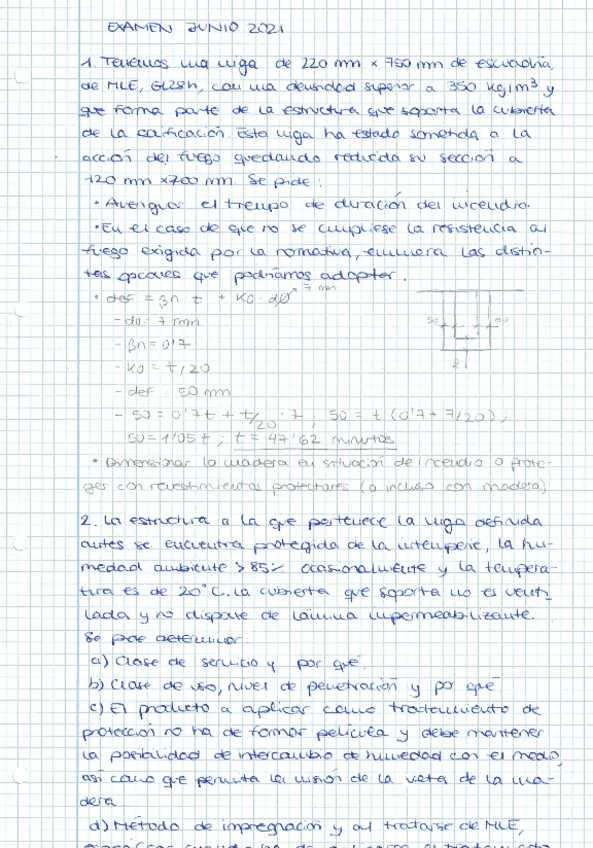 EXAMEN JUNIO 2021
1. Tenemos una viga de 220 mm x 750 mm de escuadría
de MLE, GL28h, con una densidad superior a 350 kg/m³ y
que forma parte de la estructura que soporta la cubierta
de la edificación. Esta viga ha estado sometida a la
acción del fuego quedando reducida su sección a
120 mm x700 mm. Se pide:
• Averiguar el tiempo de duración del incendio.
• En el caso de que no se cumpliese la resistencia al
fuego exigida por la normativa, enumera las distin-
tas opciones que podríamos adoptar.
• def = βn t + K0 · d0 7 mm
- do = 7 mm
- βn = 0'7
- K0 = t/20
- def = 50 mm
- 50 = 0'7t + t/20 · 7 ; 50 = t (0'7 + 7/20);
50 = 1'05 t ; t = 47'62 minutos
50 50
• Dimensionar la madera en situación de incendio o prote-
ger con revestimientos protectores (o incluso con madera)
2. La estructura a la que pertenece la viga definida
antes se encuentra protegida de la intemperie, la hu-
medad ambiente > 85% ocasionalmente y la tempera-
tura es de 20°C. La cubierta que soporta no es venti-
lada y no dispone de lámina impermeabilizante.
Se pide determinar:
a) Clase de servicio y por qué.
b) Clase de uso, nivel de penetración y por qué
c) El producto a aplicar como tratamiento de
protección no ha de formar película y debe mantener
la posibilidad de intercambio de humedad con el medio,
así como que permita la visión de la veta de la ma-
dera
d) Método de impregnación y al tratarse de MLE,